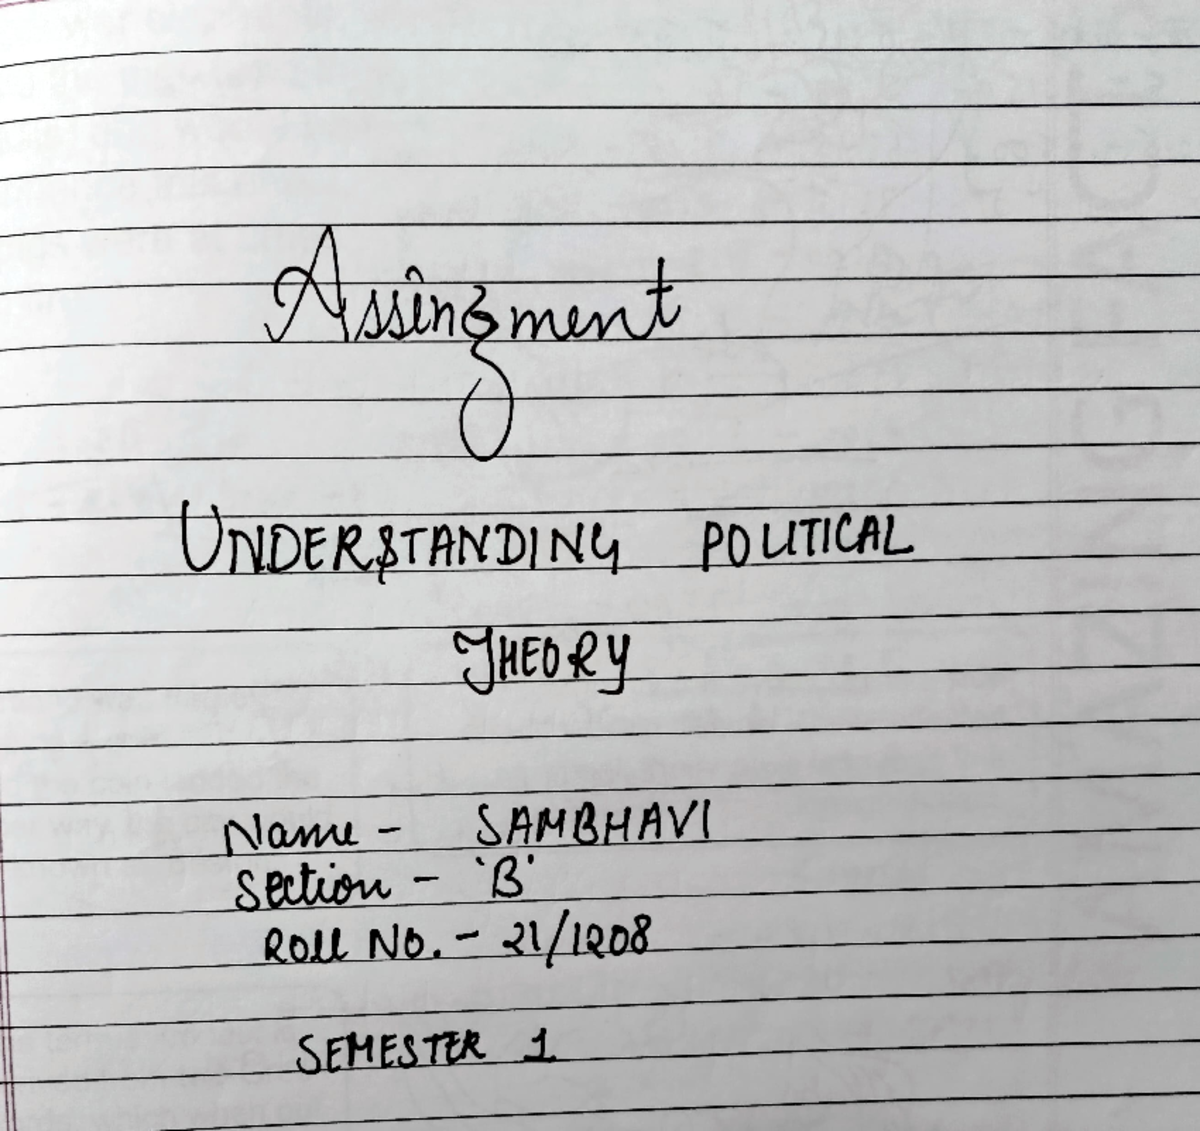 Assingment
UNDERSTANDING POLITICAL
THEORY
Name - SAMBHAVI
Section - 'B'
Roll No. - 21/1208
SEMESTER 1